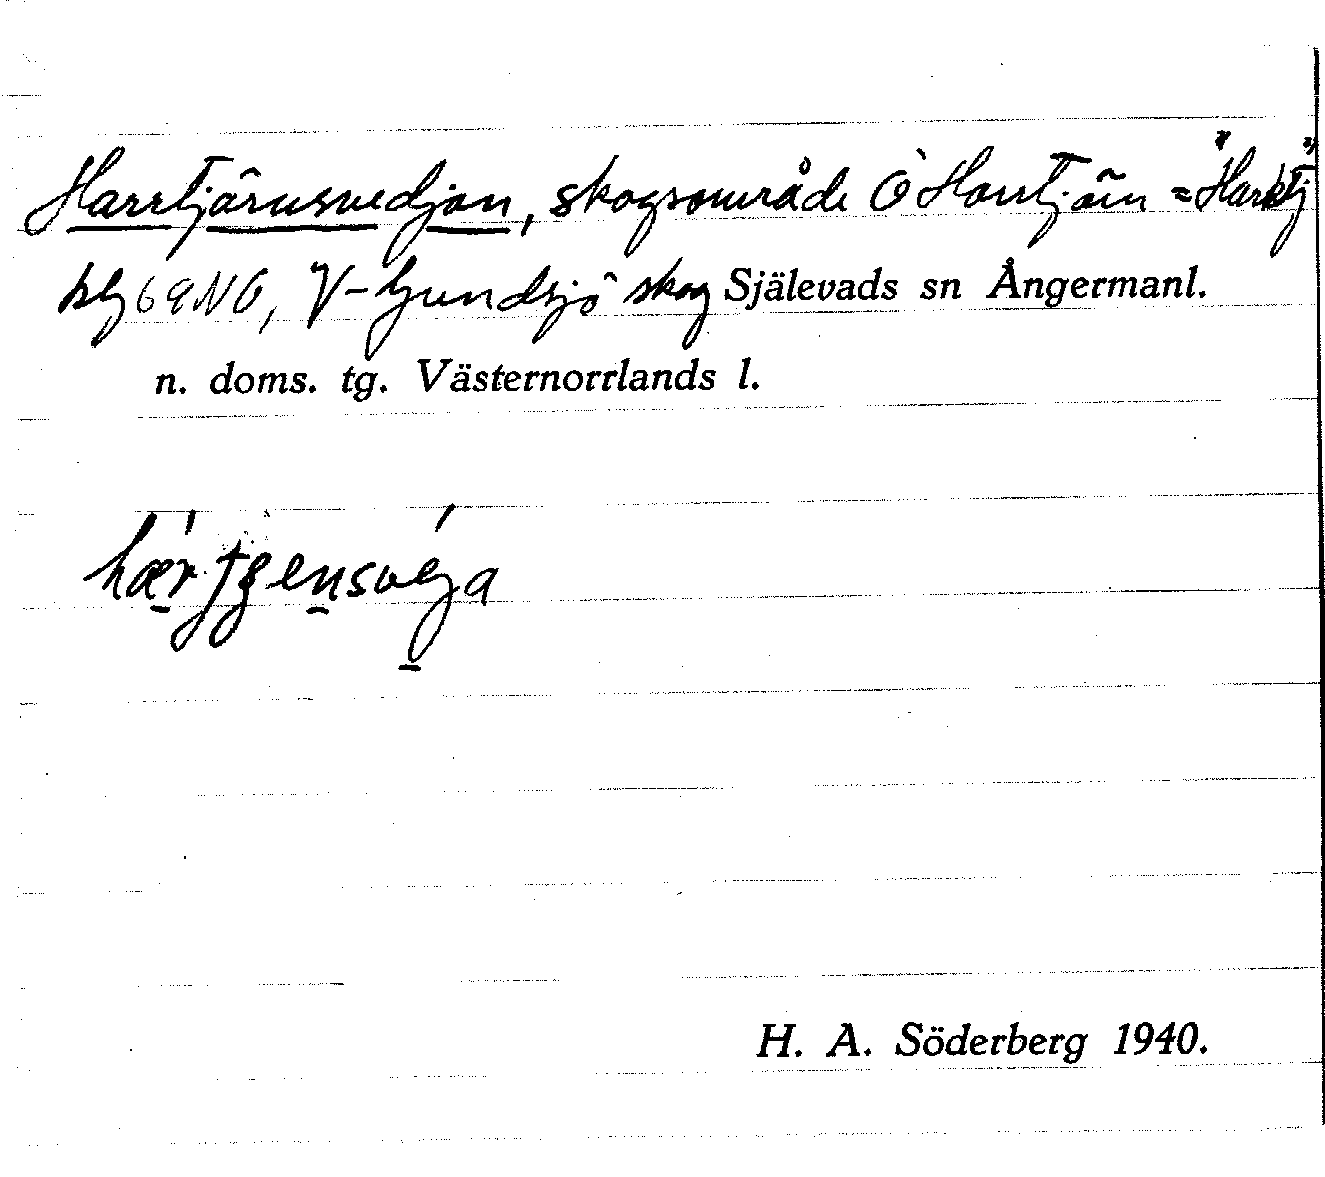 Harrtjärnsvedjan, skogsområde Ö Harrtjärn = "Harktj"
kbl 69 NO, V-Gundsjö skog Själevads sn Ångermanl.
n. doms. tg. Västernorrlands l.
H. A. Söderberg 1940.